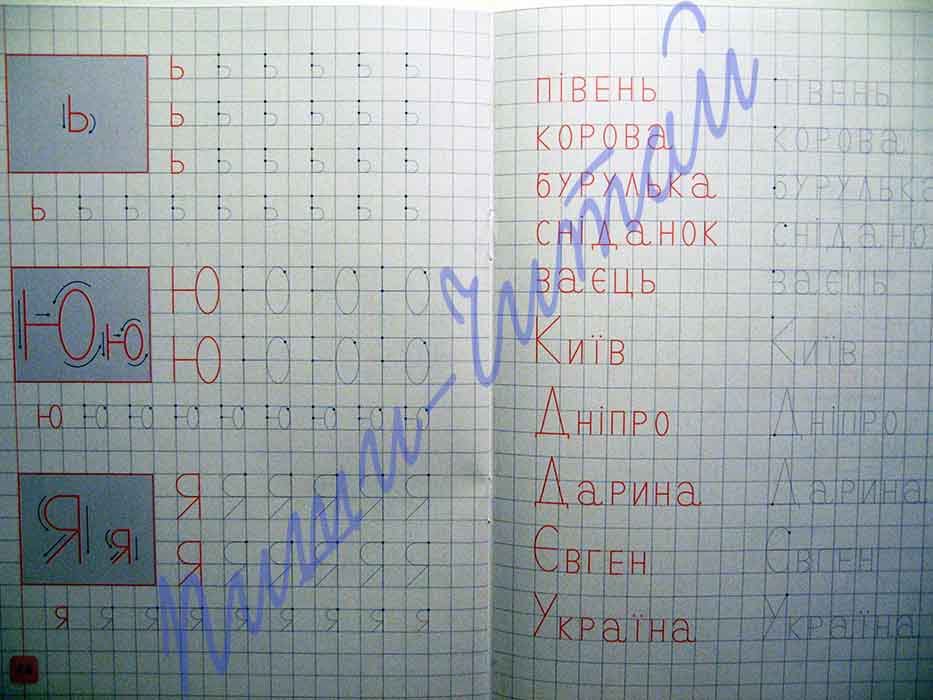 ь
ь ь ь ь ь ь
ь ь ь ь ь ь
ь ь ь ь ь ь
ь ь ь ь ь ь ь ь ь
Ю ю
Ю Ю Ю Ю
Ю Ю Ю Ю
ю ю ю ю ю ю ю ю ю
Я я
Я Я Я Я Я Я
Я Я Я Я Я Я
я я я я я я я я я
півень півень
корова корова
бурулька бурулька
сніданок снідано
заєць заєць
Київ Київ
Дніпро Дніпро
Дарина Дарина
Євген Євген
Україна Україна
Пиши-Читай